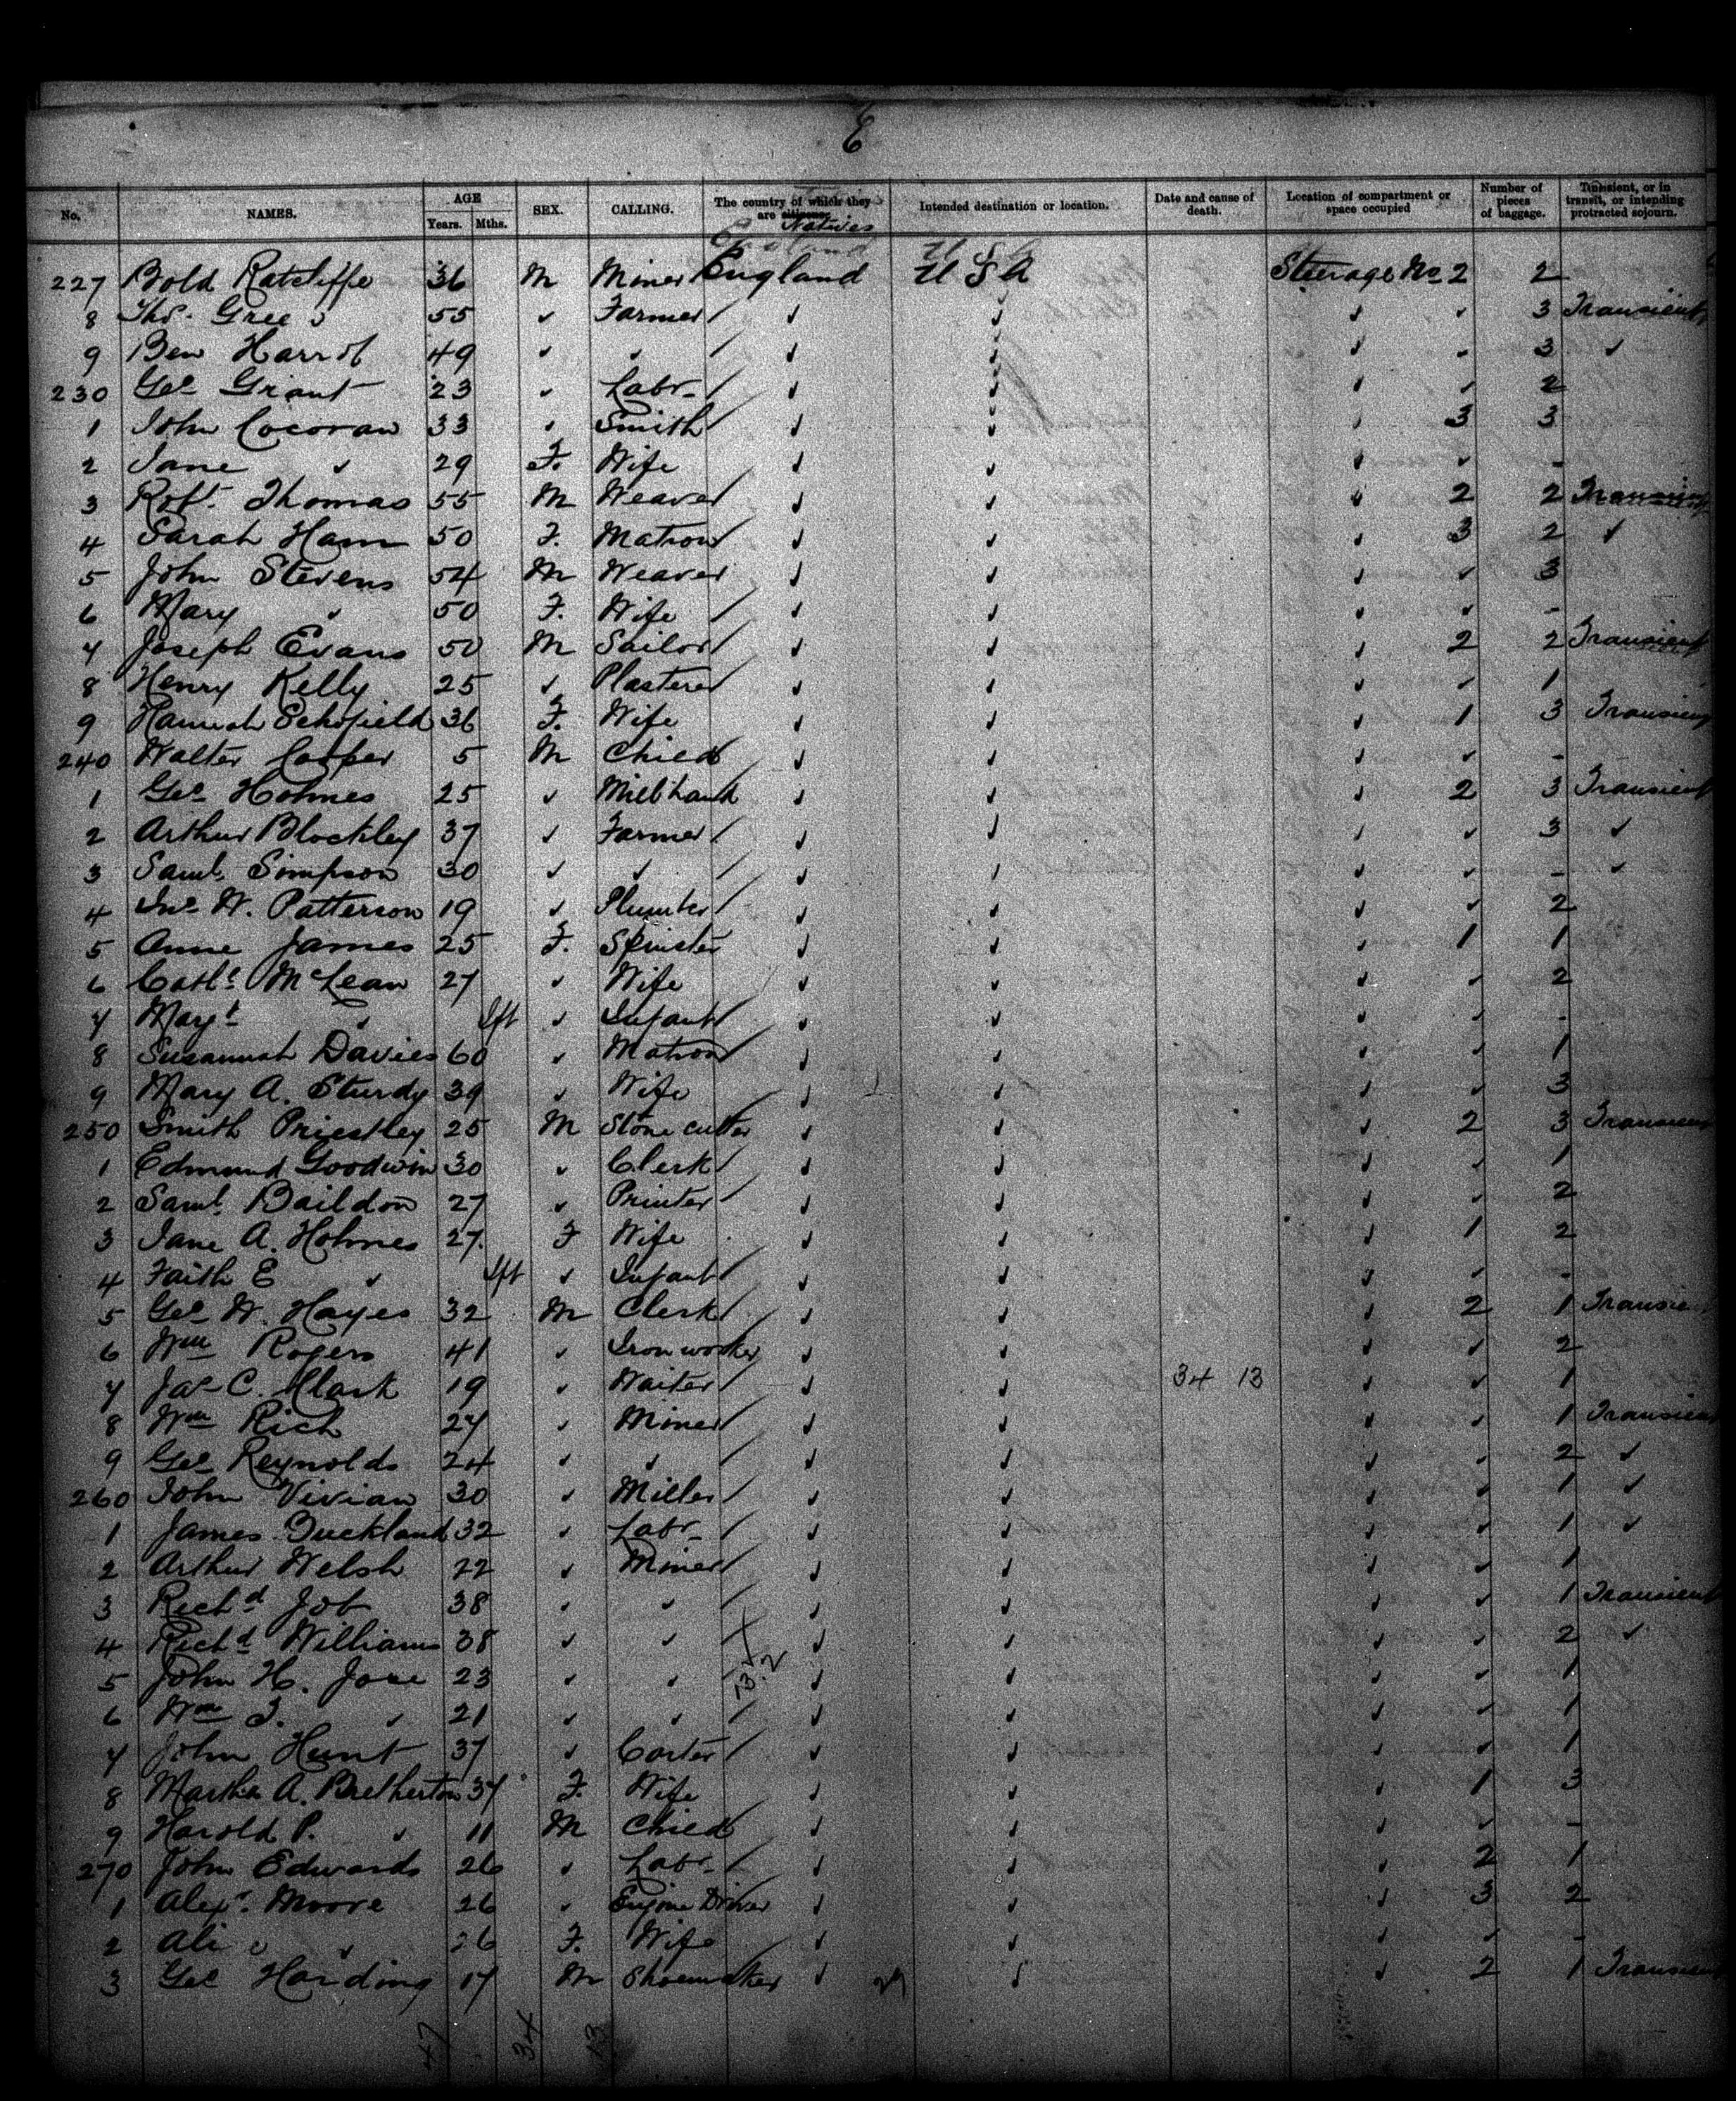 E
No. NAMES. AGE Years. Mths. SEX. CALLING. The country of which they are citizens. Natives Intended destination or location. Date and cause of death. Location of compartment or space occupied Number of pieces of baggage. Transient, or in transit, or intending protracted sojourn.
England U S A
227 Bold Ratcliffe 36 M Miner England U S A Steerage No 2 2
8 Thos. 55 ✓ Farmer / ✓ ✓ ✓ ✓ 3 Transient
9 Ben Harrof 49 ✓ ✓ / ✓ ✓ ✓ ✓ 3 ✓
230 Geo Grant 23 ✓ Labr / ✓ ✓ ✓ ✓ 2
1 John Cocoran 33 ✓ Smith / ✓ ✓ ✓ 3 3
2 Jane ✓ 29 F. Wife ✓ ✓ ✓ ✓ -
3 Robt. Thomas 55 M Weaver / ✓ ✓ ✓ 2 2 Transient
4 Sarah Ham 50 F. Matron / ✓ ✓ ✓ 3 2 ✓
5 John Stevens 54 M Weaver / ✓ ✓ ✓ ✓ 3
6 Mary ✓ 50 F. Wife / ✓ ✓ ✓ ✓ -
7 Joseph Evans 50 M Sailor / ✓ ✓ ✓ 2 2 Transient
8 Henry Kelly 25 ✓ Plasterer ✓ ✓ ✓ ✓ 1
9 Hannah Schofield 36 F. Wife / ✓ ✓ ✓ 1 3 Transient
240 Walter Cooper 5 M Child ✓ ✓ ✓ ✓ -
1 Geo Holmes 25 ✓ Millhand ✓ ✓ ✓ 2 3 Transient
2 Arthur Blockley 37 ✓ Farmer / ✓ ✓ ✓ ✓ 3 ✓
3 Saml. Simpson 30 ✓ ✓ / ✓ ✓ ✓ ✓ - ✓
4 Jno W. Patterson 19 ✓ Plumber / ✓ ✓ ✓ ✓ 2
5 Anne James 25 F. Spinster ✓ ✓ ✓ 1 1
6 Cathe McLean 27 ✓ Wife ✓ ✓ ✓ ✓ 2
7 Magt ✓ Ift ✓ Infant / ✓ ✓ ✓ ✓ -
8 Susannah Davies 60 ✓ Matron / ✓ ✓ ✓ ✓ 1
9 Mary A. Sturdy 39 ✓ Wife ✓ ✓ ✓ ✓ 3
250 Smith Priestley 25 M Stone cutter ✓ ✓ ✓ 2 3 Transient
1 Edmund Goodwin 30 ✓ Clerk / ✓ ✓ ✓ ✓ 1
2 Saml. Baildon 27 ✓ Printer / ✓ ✓ ✓ ✓ 2
3 Jane A. Holmes 27. F Wife ✓ ✓ ✓ 1 2
4 Faith E ✓ Ift ✓ Infant / ✓ ✓ ✓ ✓ -
5 Geo W. Hayes 32 M Clerk / ✓ ✓ ✓ 2 1 Transie
6 Wm Rogers 41 ✓ Iron worker ✓ ✓ ✓ ✓ 2
7 Jas C. Clark 19 ✓ Waiter / ✓ ✓ 34 13 ✓ ✓ 1
8 Wm Rich 27 ✓ Miner / ✓ ✓ ✓ ✓ 1 Transient
9 Geo Reynolds 24 ✓ ✓ / ✓ ✓ ✓ ✓ 2 ✓
260 John Vivian 30 ✓ Miller / ✓ ✓ ✓ ✓ 1 ✓
1 James Buckland 32 ✓ Labr / ✓ ✓ ✓ ✓ 1 ✓
2 Arthur Welsh 22 ✓ Miner / ✓ ✓ ✓ ✓ 1
3 Richd Job 38 ✓ ✓ / ✓ ✓ ✓ ✓ 1 Transient
4 Richd Williams 38 ✓ ✓ / ✓ ✓ ✓ ✓ 2 ✓
5 John H. Jose 23 ✓ ✓ ✓ ✓ ✓ ✓ 1
6 Wm J. ✓ 21 ✓ ✓ / ✓ ✓ ✓ ✓ 1
7 John Hunt 37 ✓ Carter / ✓ ✓ ✓ ✓ 1
8 Martha A. Bretherton 37 F. Wife ✓ ✓ ✓ 1 3
9 Harold P. ✓ 11 M Child ✓ ✓ ✓ ✓ -
270 John Edwards 26 ✓ Labr / ✓ ✓ ✓ 2 1
1 Alexr. Moore 26 ✓ Engine Driver ✓ ✓ ✓ 3 2
2 ✓ 26 F. Wife ✓ ✓ ✓ ✓ -
3 Geo Harding 17 M Shoemaker ✓ ✓ ✓ 2 1 Transient
47 34 13